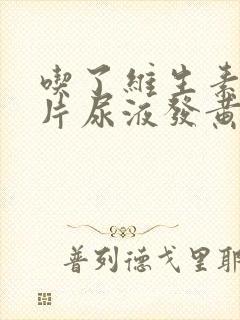 喫了維生素
片尿液發黃
普列德戈里耶